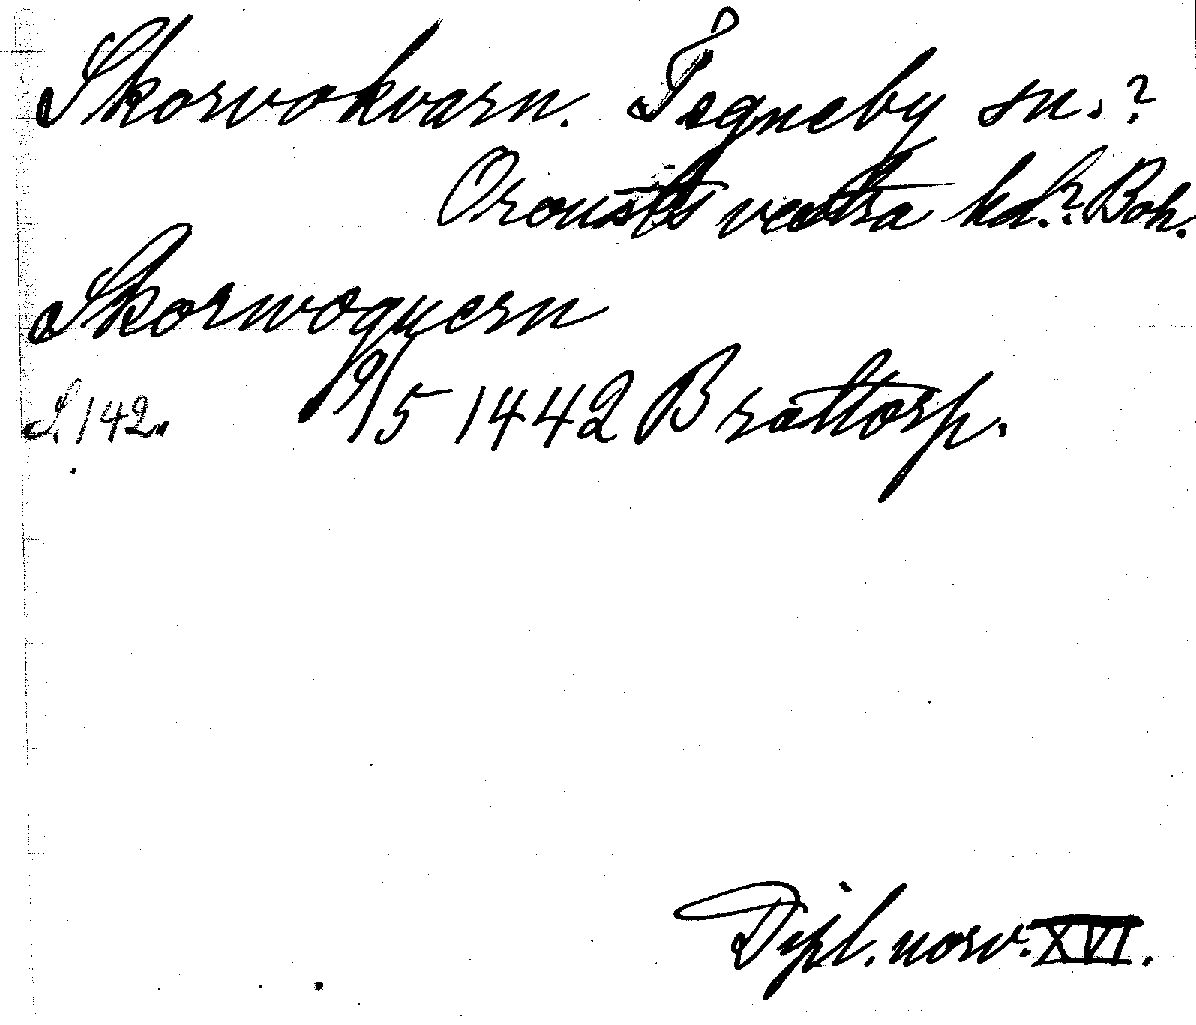 Skorvokvarn. Tegneby sn.?
Orousts västra hd.? Boh.
Skorwoquern
S. 142. 19/5 1442 Brattorp.
Dipl. norv. XVI.